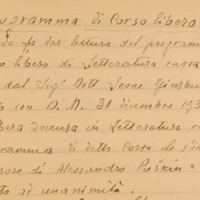 ogramma di Corso libero
do fa dar lettura del program
o libero di Letteratura russa
dal Sig. Dott. Leone Ginzbu
o con D. M. 31 dicembre 193
bera Docenza in Letteratura r
gramma di detto Corso di s'i
rose di Alessandro Puškin"
to ad unanimità.